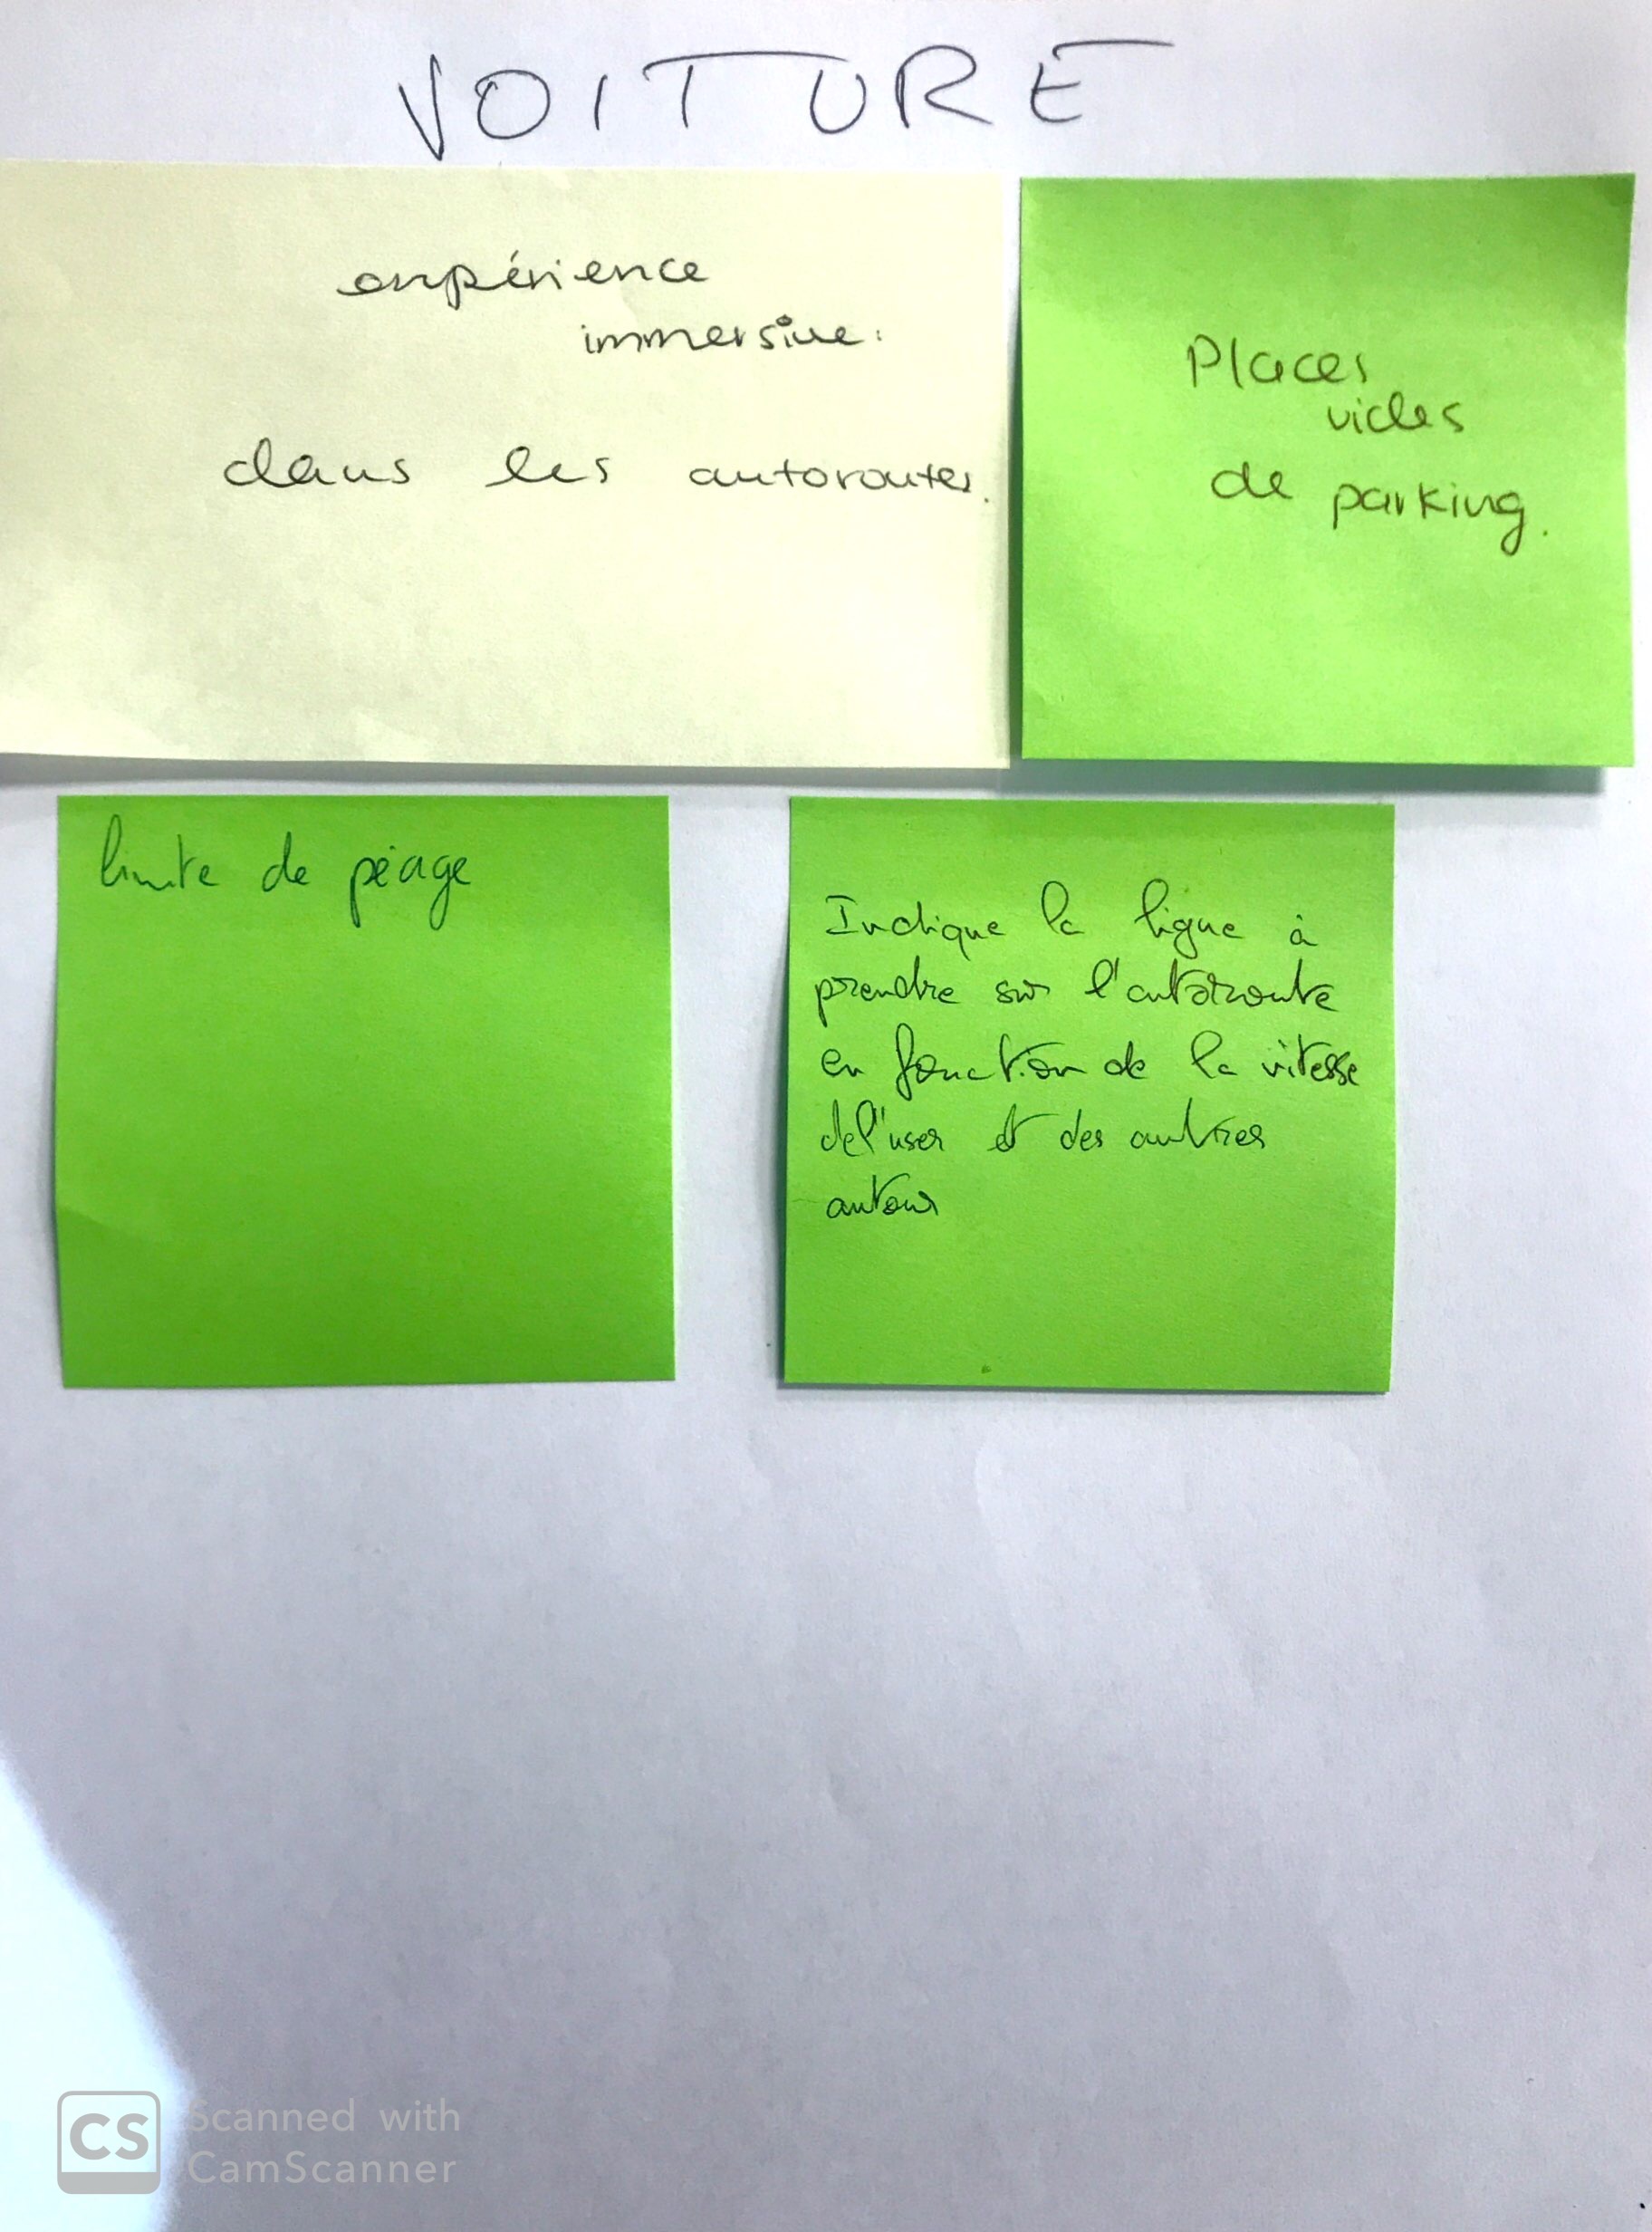 VOITURE
expérience
immersive.
dans les autoroutes.
Places
vides
de parking.
limite de péage
Indique la ligne à
prendre sur l'autoroute
en fonction de la vitesse
de l'user et des autres
autour
CS Scanned with
CamScanner